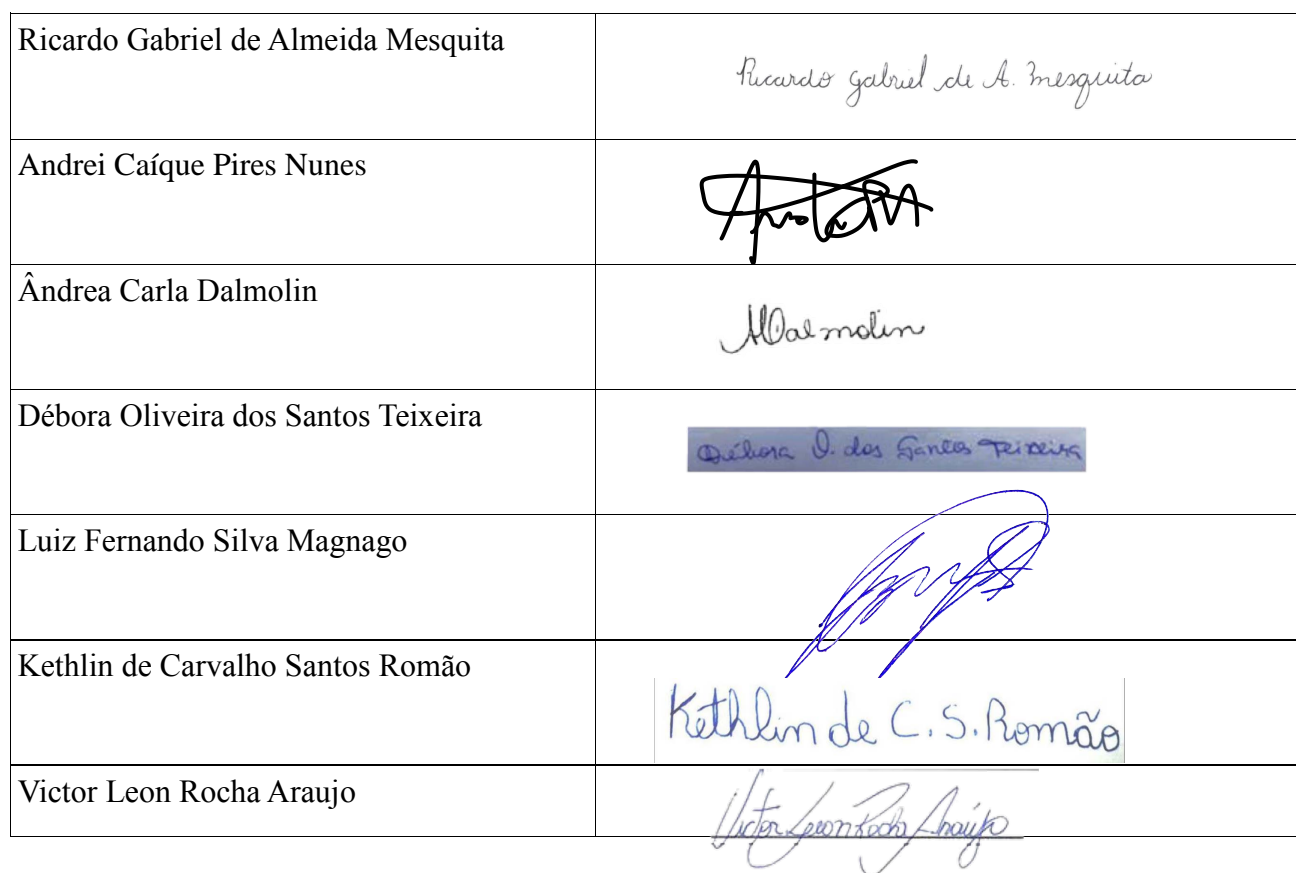 Ricardo Gabriel de Almeida Mesquita
Ricardo Gabriel de A. Mesquita
Andrei Caíque Pires Nunes
Ândrea Carla Dalmolin
ADalmolin
Débora Oliveira dos Santos Teixeira
Débora O. dos Santos Teixeira
Luiz Fernando Silva Magnago
Kethlin de Carvalho Santos Romão
Kethlin de C. S. Romão
Victor Leon Rocha Araujo
Victor Leon Rocha Araújo